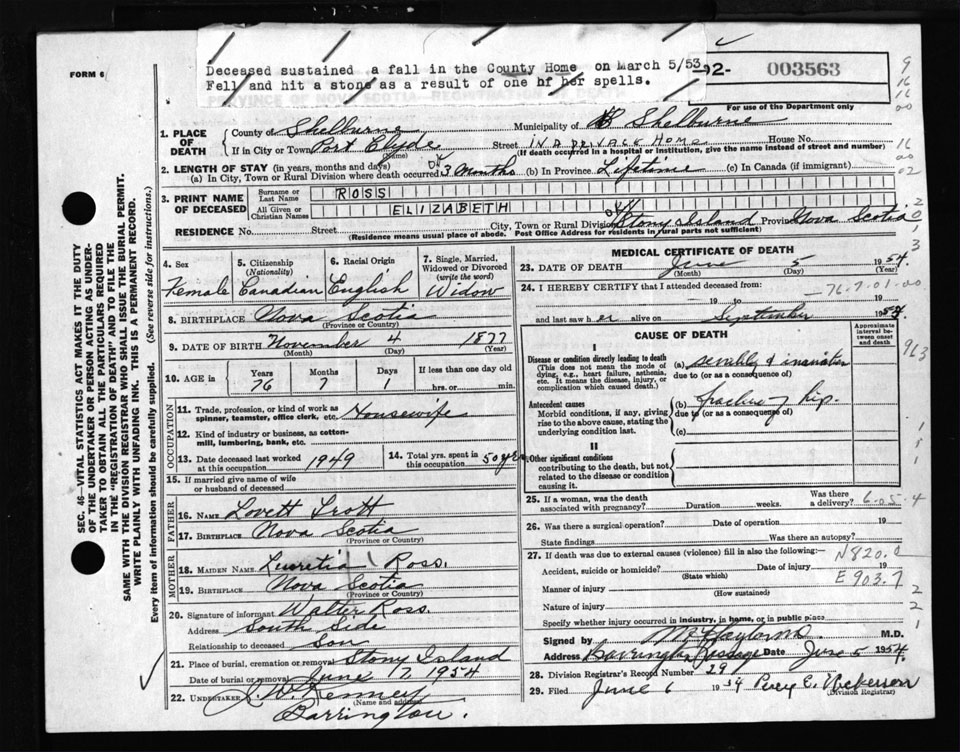 FORM 6
Deceased sustained a fall in the County Home on March 5/53
Fell and hit a stone as a result of one of her spells.
-92- 003563
For use of the Department only
1. PLACE OF DEATH County of Shelburne Municipality of Shelburne
If in City or Town Port Clyde Street IN A PRIVATE HOME House No.
(Name) (If death occurred in a hospital or institution, give the name instead of street and number)
2. LENGTH OF STAY (in years, months and days)
(a) In City, Town or Rural Division where death occurred 3 months (b) In Province Lifetime (c) In Canada (if immigrant)
3. PRINT NAME OF DECEASED Surname or Last Name ROSS
All Given or Christian Names ELIZABETH
RESIDENCE No. Street City, Town or Rural Division Stony Island Province Nova Scotia
(Residence means usual place of abode. Post Office Address for residents in rural parts not sufficient)
SEC. 46—VITAL STATISTICS ACT MAKES IT THE DUTY
OF THE UNDERTAKER OR PERSON ACTING AS UNDER-
TAKER TO OBTAIN ALL THE PARTICULARS REQUIRED
IN THE "REGISTRATION OF DEATH" AND TO FILE THE
SAME WITH THE DIVISION REGISTRAR WHO SHALL ISSUE THE BURIAL PERMIT.
WRITE PLAINLY WITH UNFADING INK. THIS IS A PERMANENT RECORD.
Every item of information should be carefully supplied. (See reverse side for instructions.)
4. Sex Female
5. Citizenship (Nationality) Canadian
6. Racial Origin English
7. Single, Married, Widowed or Divorced (write the word) Widow
8. BIRTHPLACE Nova Scotia
(Province or Country)
9. DATE OF BIRTH November 4 1877
(Month) (Day) (Year)
10. AGE in Years 76 Months 7 Days 1 If less than one day hrs. or min.
OCCUPATION
11. Trade, profession, or kind of work as spinner, teamster, office clerk, etc. Housewife
12. Kind of industry or business, as cotton-mill, lumbering, bank, etc.
13. Date deceased last worked at this occupation 1949
14. Total yrs. spent in this occupation 50 yrs
15. If married give name of wife or husband of deceased
FATHER
16. NAME Lovett Trott
17. BIRTHPLACE Nova Scotia
(Province or Country)
MOTHER
18. MAIDEN NAME Lucretia Ross.
19. BIRTHPLACE Nova Scotia
(Province or Country)
20. Signature of informant Walter Ross.
Address South Side
Relationship to deceased Son
21. Place of burial, cremation or removal Stony Island
Date of burial or removal June 7 1954
22. UNDERTAKER Kenney
(Name and address)
Barrington.
MEDICAL CERTIFICATE OF DEATH
23. DATE OF DEATH June 5 1954.
(Month) (Day) (Year)
24. I HEREBY CERTIFY that I attended deceased from: 76-7-01-00
19 to 19
and last saw her alive on September 1954
CAUSE OF DEATH
Approximate interval between onset and death
I
Disease or condition directly leading to death
(This does not mean the mode of dying, e.g., heart failure, asthenia, etc. It means the disease, injury, or complication which caused death.)
(a) senility & inanition
due to (or as a consequence of)
Antecedent causes
Morbid conditions, if any, giving rise to the above cause, stating the underlying condition last.
(b) fracture hip.
due to (or as a consequence of)
(c)
II
Other significant conditions
contributing to the death, but not related to the disease or condition causing it.
25. If a woman, was the death associated with pregnancy? Duration weeks. Was there a delivery? 6-05-4
26. Was there a surgical operation? Date of operation 19
State findings Was there an autopsy?
27. If death was due to external causes (violence) fill in also the following:— N820.0
Accident, suicide or homicide? Date of injury 19
(State which) E903.7
Manner of injury
(How sustained)
Nature of injury
Specify whether injury occurred in industry, in home, or in public place
Signed by M.D.
Address Barrington Passage Date June 5 1954.
28. Division Registrar's Record Number 291
29. Filed June 6 1954 Percy E. Nickerson
(Division Registrar)